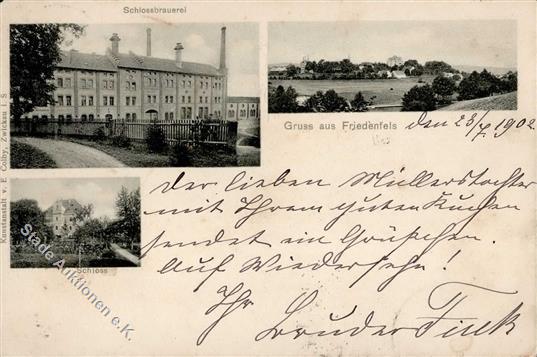 Schlossbrauerei
Gruss aus Friedenfels den 28/7 1902
Kunstanstalt v. E. Colby, Zwickau i. S
Schloss
Der lieben Müllerstochter
mit Ihrem guten Kuchen
sendet ein Grüßchen.
Auf Wiedersehn!
Ihr
Bruder Fink
Stade Auktionen e.K.